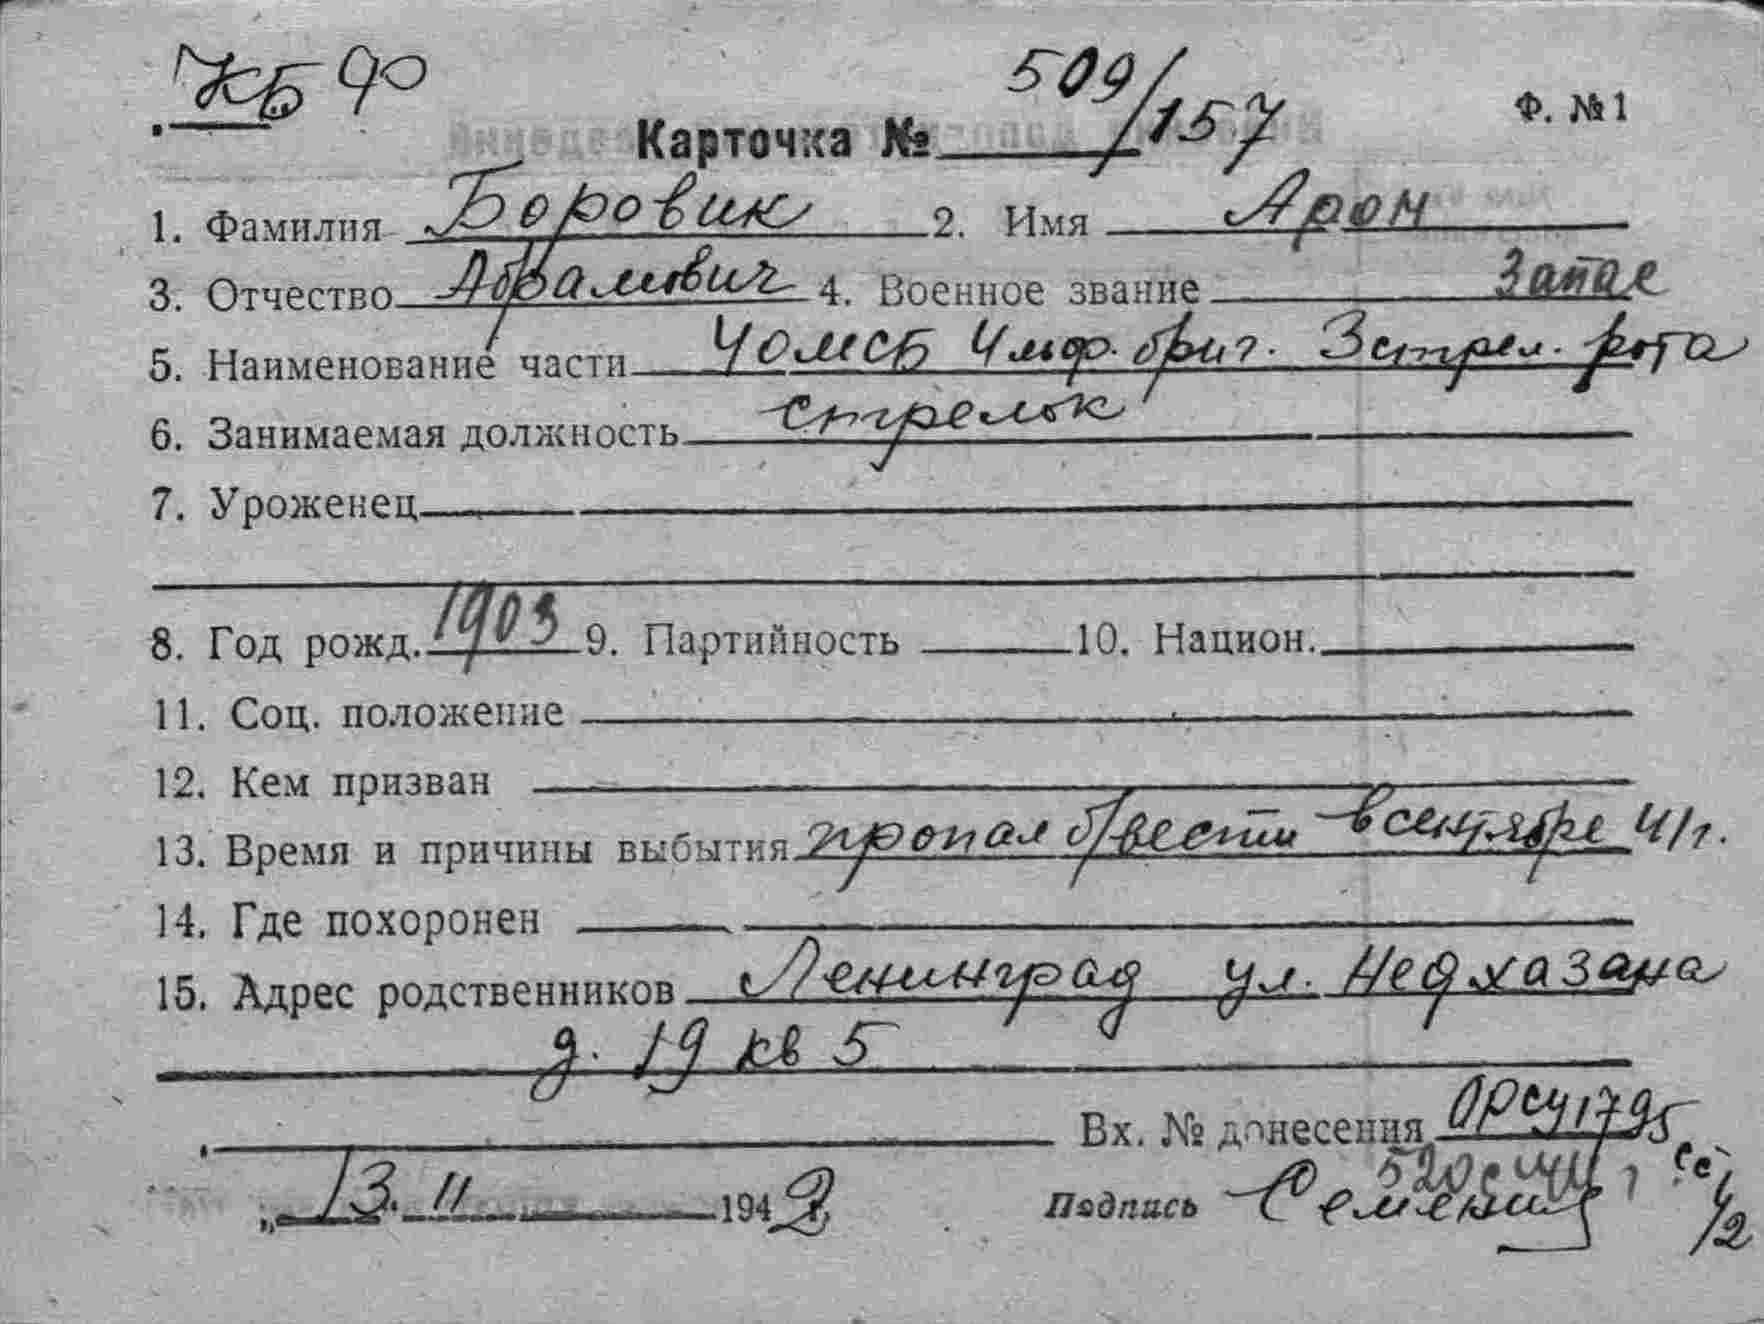 КБ 90
509/157
Ф. №1
Карточка №
1. Фамилия Боровик 2. Имя Арон
3. Отчество Абрамович 4. Военное звание Запас
5. Наименование части ЧОМСБ 4 мор. бриг. 3 стрел. рота
6. Занимаемая должность стрелок
7. Уроженец
8. Год рожд. 1903 9. Партийность 10. Национ.
11. Соц. положение
12. Кем призван
13. Время и причины выбытия пропал б/вести в сентябре 41г.
14. Где похоронен
15. Адрес родственников Ленинград ул. Недхазана
д. 19 кв 5
Вх. № донесения
„13. 11 1942 Подпись